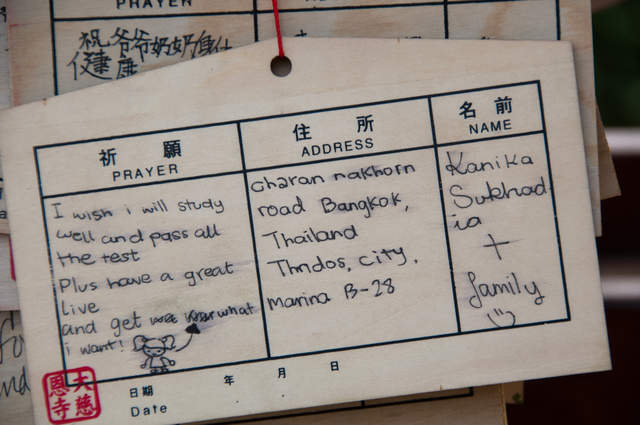 PRAYER
ADDRESS
祝爷爷奶奶身体
健康
祈願
PRAYER
住所
ADDRESS
名前
NAME
I wish i will study
well and pass all
the test
Plus have a great
live
and get what
i want!
charan nakhorn
road Bangkok,
Thailand
city,
marina B-28
Kanika
Sukhad
ia
+
family
大慈
恩寺
日期 年 月 日
Date